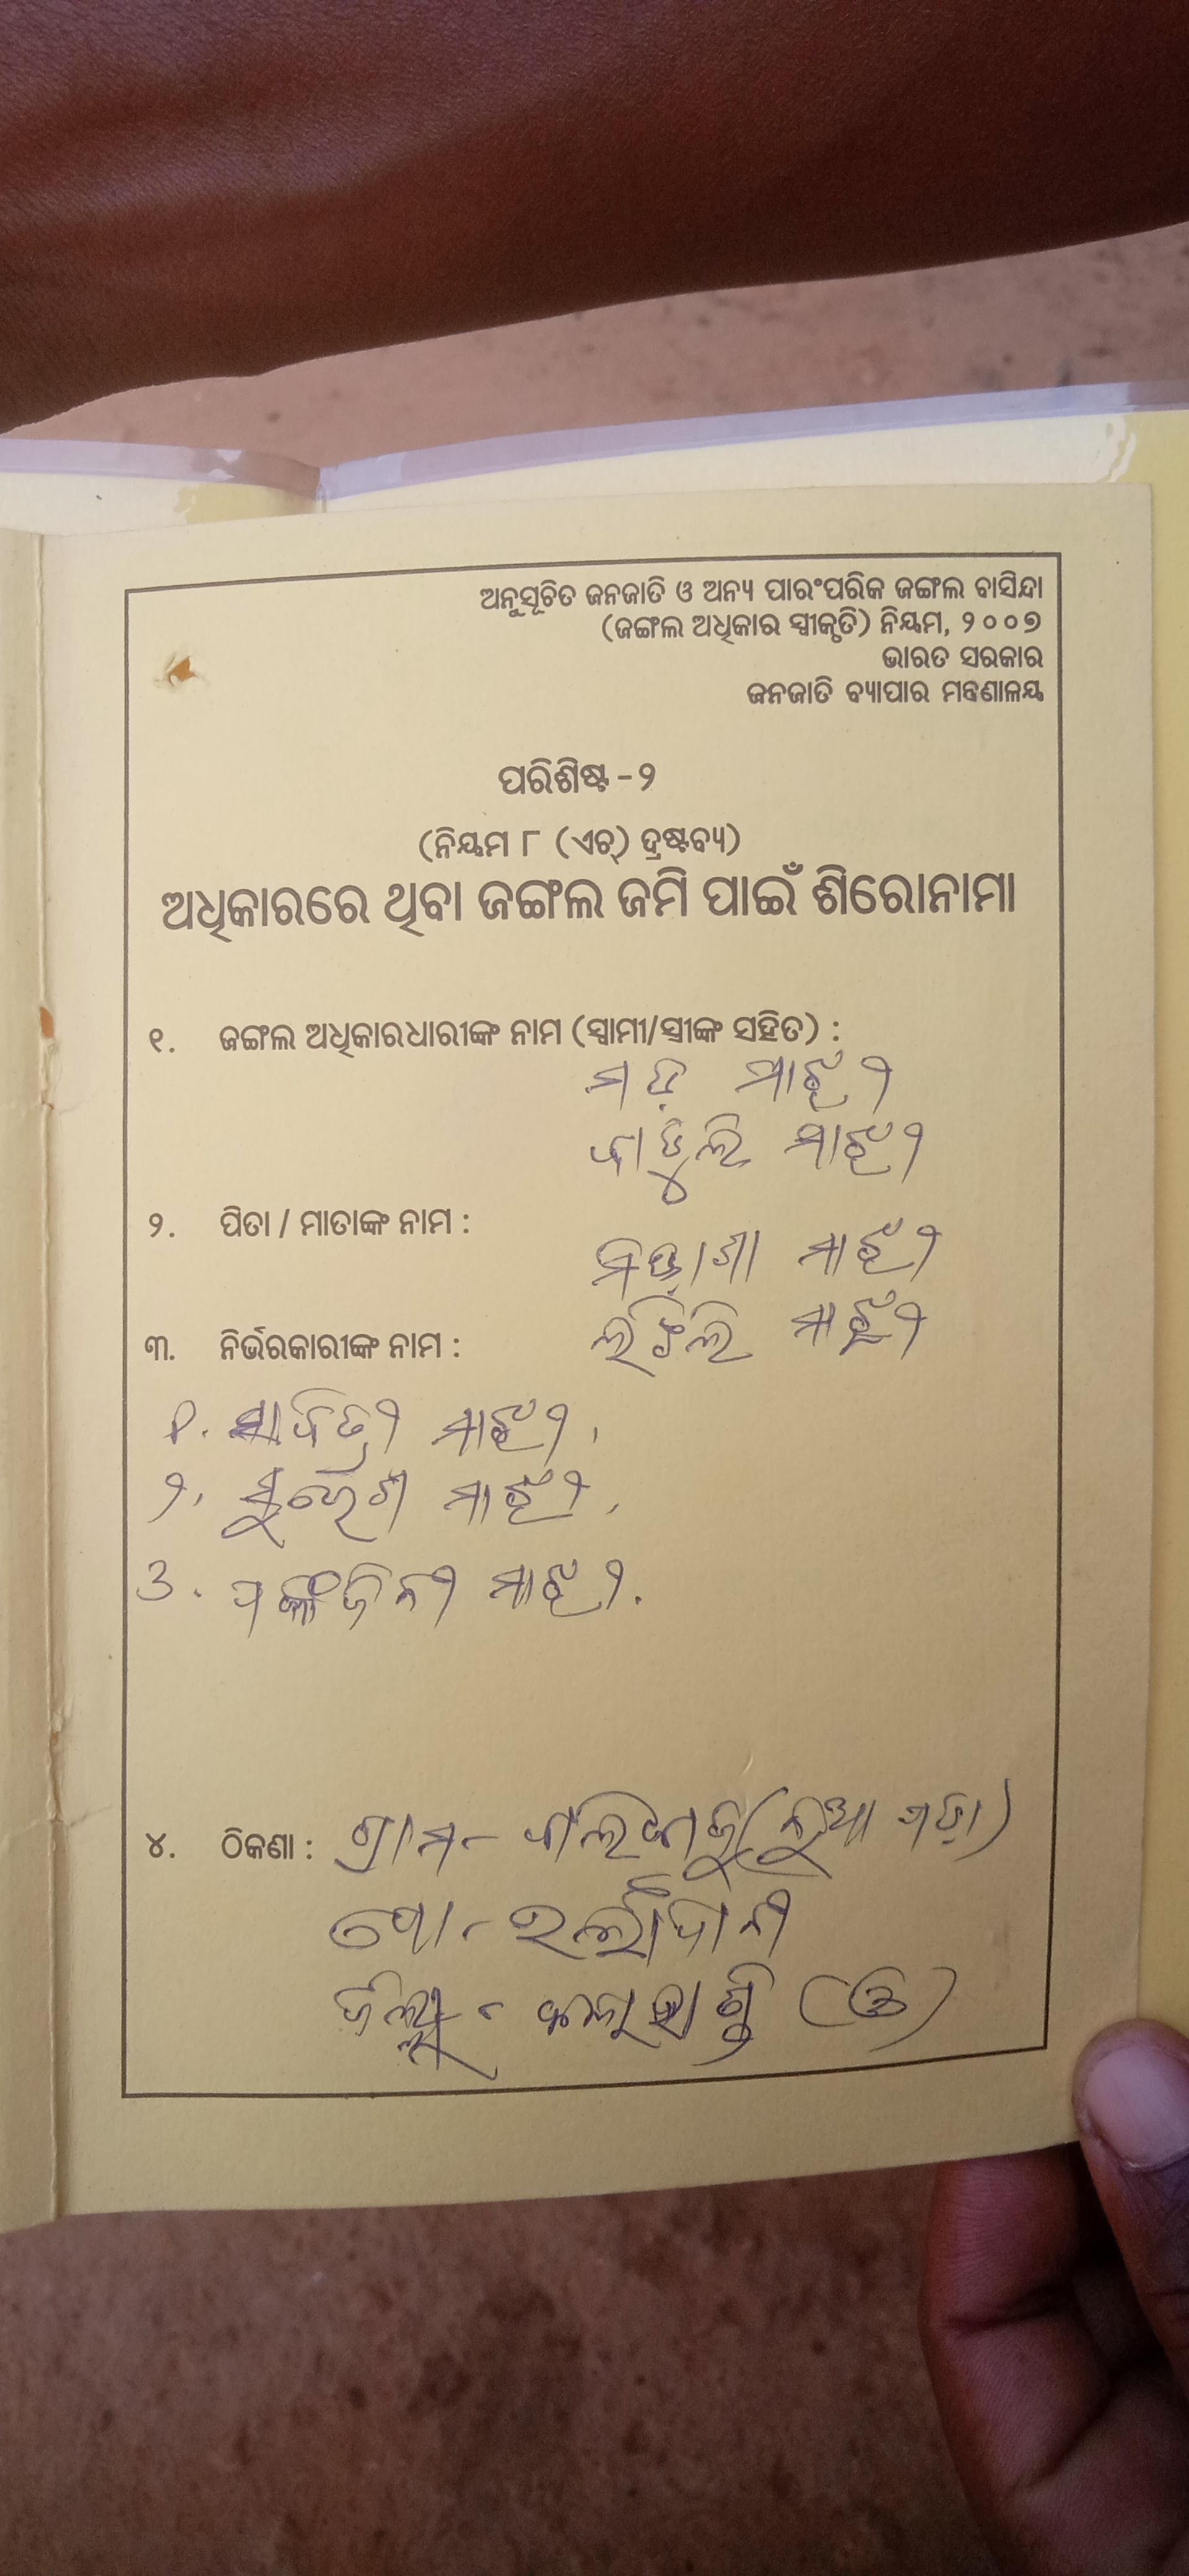 ଅନୁସୂଚିତ ଜନଜାତି ଓ ଅନ୍ୟ ପାରଂପରିକ ଜଙ୍ଗଲ ବାସିନ୍ଦା
(ଜଙ୍ଗଲ ଅଧିକାର ସ୍ୱୀକୃତି) ନିୟମ, ୨୦୦୭
ଭାରତ ସରକାର
ଜନଜାତି ବ୍ୟାପାର ମନ୍ତ୍ରଣାଳୟ
ପରିଶିଷ୍ଟ -୨
(ନିୟମ ୮ (ଏଚ୍) ଦ୍ରଷ୍ଟବ୍ୟ)
ଅଧିକାରରେ ଥିବା ଜଙ୍ଗଲ ଜମି ପାଇଁ ଶିରୋନାମା
୧. ଜଙ୍ଗଲ ଅଧିକାରଧାରୀଙ୍କ ନାମ (ସ୍ୱାମୀ/ସ୍ତ୍ରୀଙ୍କ ସହିତ) :
ମାଝୀ
ମାଝୀ
୨. ପିତା / ମାତାଙ୍କ ନାମ :
ମାଝୀ
୩. ନିର୍ଭରକାରୀଙ୍କ ନାମ :
ମାଝୀ
୧. ସାବିତ୍ରୀ ମାଝୀ,
୨, ମାଝୀ,
୩. ମାଝୀ.
୪. ଠିକଣା : ଗ୍ରାମ- (ନୂଆ ପଡ଼ା)
ପୋ-
ଜିଲ୍ଲା - କଳାହାଣ୍ଡି (ଓ)